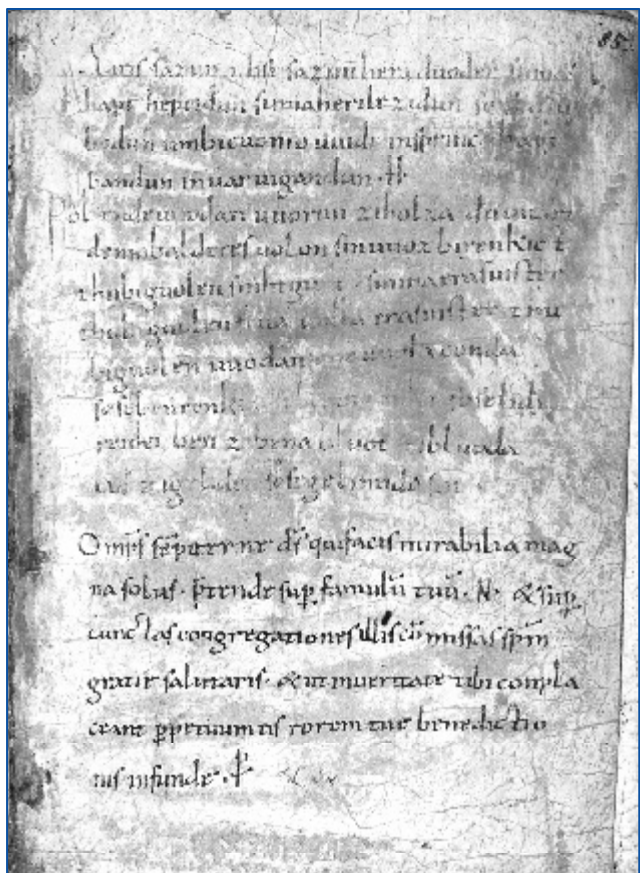 85
Eiris sazun idisi sazun hera duoder suma
hapt heptidun sumaherilezidun
bodun umbicuonio uuidi insprinc hapt
bandun inuar uigandun · H
Pol endeuuodan uuorun ziholza
demobalderes uolon sinuuoz birenkict
thubiguolen sinhtgunt · sunnaerasuister
thubiguolen friia uolla erasuister thu
biguolen uuodan uuolaconda
sosebenrenki soselidi
renki ben zibena bluot zibluoda
lid zigeliden sosegelimida sin
Omp̅s se̅piterne d̅s quifacis mirabilia mag
na solus · p̅tende sup̲ famulu̅ tuu̅ · N · & sup̲
cunctas congregationes illi co̅missas sp̅m
gratie salutaris · & ut inueritate tibi conpla
ceant p̲petuum eis rorem tue benedictio
nis infunde ·